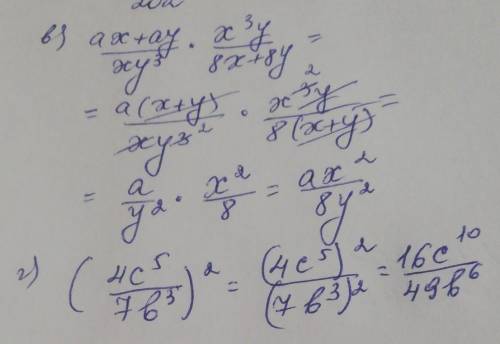 в) (ax+ay)/(xy³) · (x³y)/(8x+8y) =
= (a(x+y))/(xy³²) · (x³²y)/(8(x+y)) =
= a/y² · x²/8 = ax²/8y²
г) (4c⁵/7b³)² = (4c⁵)²/(7b³)² = 16c¹⁰/49b⁶